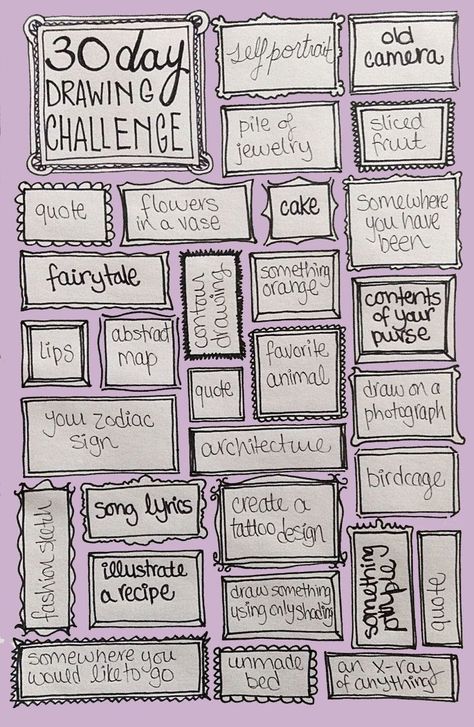 30 day
DRAWING
CHALLENGE
self portrait
old
camera
pile of
jewelry
sliced
fruit
quote
flowers
in a vase
cake
somewhere
you have
been
fairytale
contour
drawing
something
orange
contents
of your
purse
lips
abstract
map
quote
favorite
animal
draw on a
photograph
your zodiac
sign
architecture
birdcage
fashion sketch
song lyrics
create a
tattoo design
something
purple
quote
illustrate
a recipe
draw something
using only shading
somewhere you
would like to go
unmade
bed
an x-ray
of anything